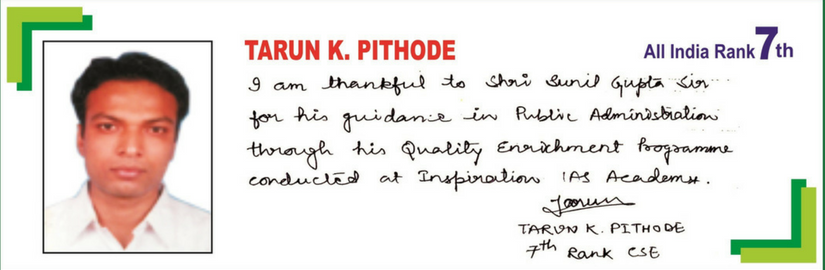 TARUN K. PITHODE
All India Rank 7th
I am thankful to Shri Sunil Gupta Sir
for his guidance in Public Administration
through his Quality Enrichment Programme
conducted at Inspiration IAS Academy.
Tarun
TARUN K. PITHODE
7th Rank CSE